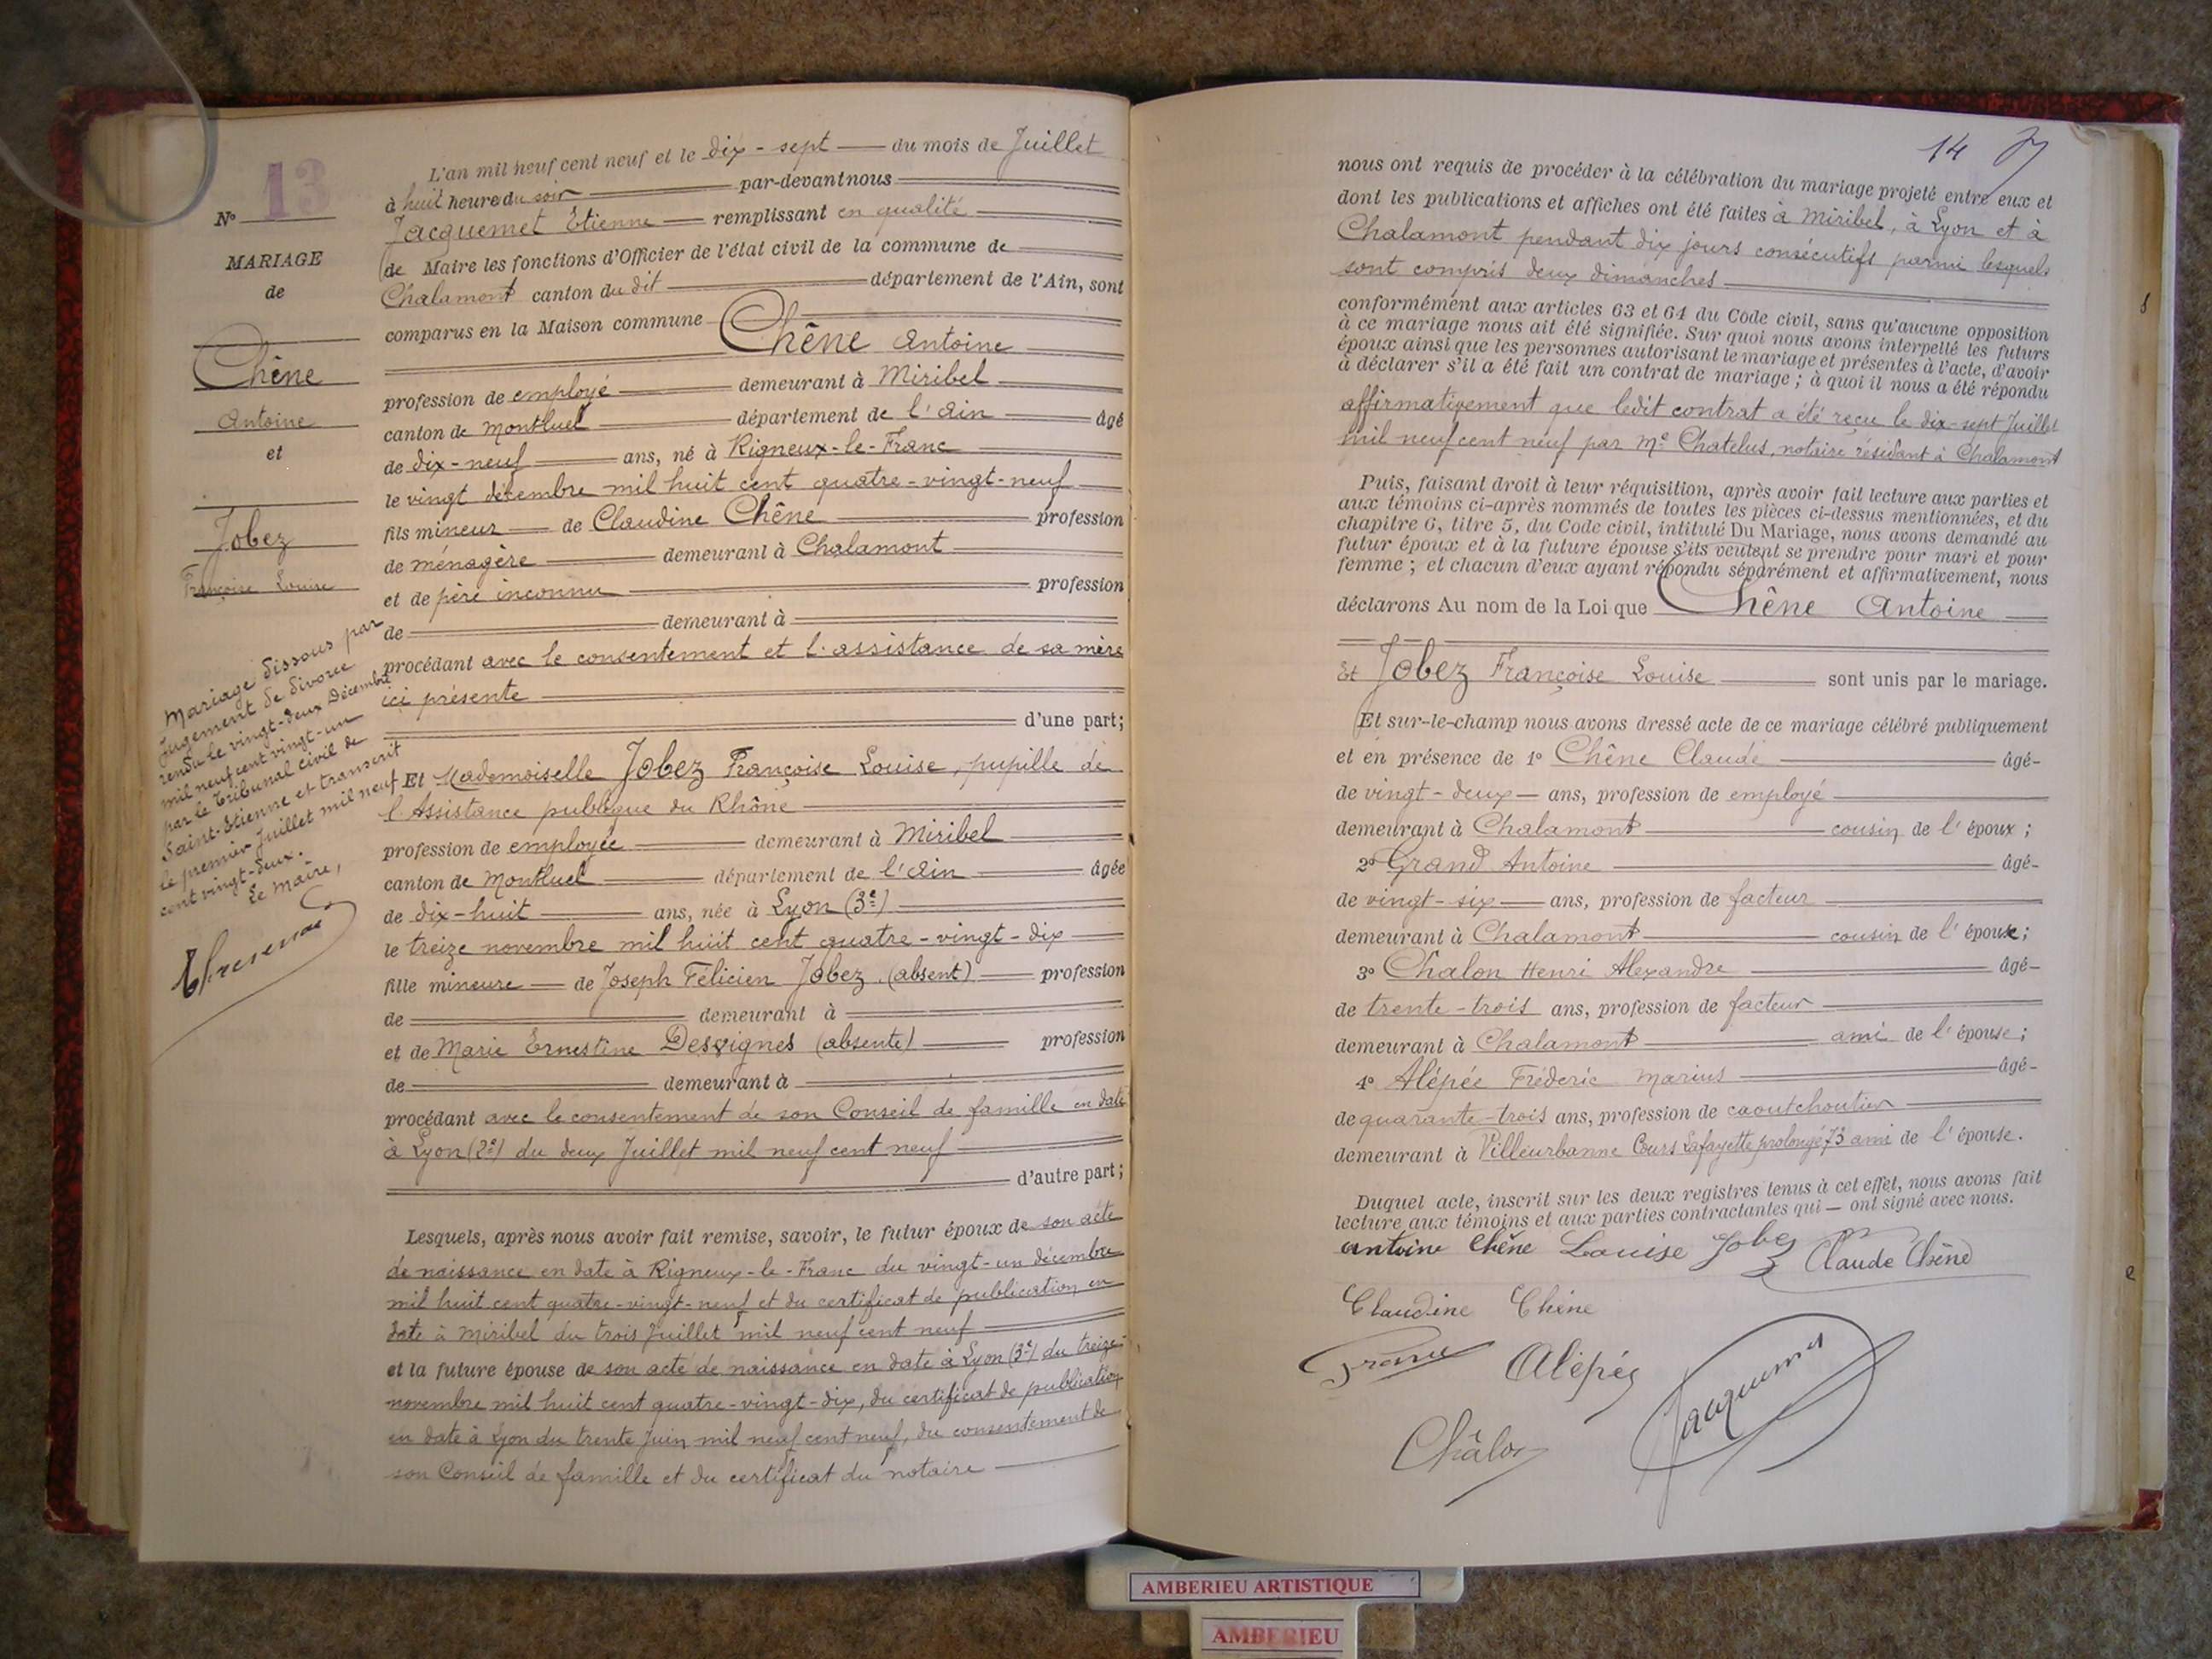 N° 13
MARIAGE
de
Chêne
Antoine
et
Jobez
Françoise Louise
Mariage dissous par
jugement de divorce
rendu le vingt-deux Décembre
mil neuf cent vingt-un
par le Tribunal civil de
Saint-Etienne et transcrit
le premier Juillet mil neuf
cent vingt-deux.
Le Maire,
L'an mil neuf cent neuf et le dix-sept du mois de Juillet
à huit heure du soir par-devant nous
Jacquemet Etienne remplissant en qualité
de Maire les fonctions d'Officier de l'état civil de la commune de
Chalamont canton du dit département de l'Ain, sont
comparus en la Maison commune Chêne Antoine
profession de employé demeurant à Miribel
canton de Montluel département de l'Ain âgé
de dix-neuf ans, né à Rigneux-le-Franc
le vingt décembre mil huit cent quatre-vingt-neuf
fils mineur de Claudine Chêne profession
de ménagère demeurant à Chalamont
et de père inconnu profession
de demeurant à
procédant avec le consentement et l'assistance de sa mère
ici présente
d'une part;
Et Mademoiselle Jobez Françoise Louise, pupille de
l'Assistance publique du Rhône
profession de employée demeurant à Miribel
canton de Montluel département de l'Ain âgée
de dix-huit ans, née à Lyon (3e)
le treize novembre mil huit cent quatre-vingt-dix
fille mineure de Joseph Félicien Jobez (absent) profession
de demeurant à
et de Marie Ernestine Desvignes (absente) profession
de demeurant à
procédant avec le consentement de son Conseil de famille en date
à Lyon (2e) du deux Juillet mil neuf cent neuf
d'autre part;
Lesquels, après nous avoir fait remise, savoir, le futur époux de son acte
de naissance en date à Rigneux-le-Franc du vingt-un décembre
mil huit cent quatre-vingt-neuf et du certificat de publication en
date à Miribel du trois Juillet mil neuf cent neuf
et la future épouse de son acte de naissance en date à Lyon (3e) du treize
novembre mil huit cent quatre-vingt-dix, du certificat de publication
en date à Lyon du trente Juin mil neuf cent neuf, du consentement de
son Conseil de famille et du certificat du notaire
14
nous ont requis de procéder à la célébration du mariage projeté entre eux et
dont les publications et affiches ont été faites à Miribel, à Lyon et à
Chalamont pendant dix jours consécutifs parmi lesquels
sont compris deux dimanches
conformément aux articles 63 et 64 du Code civil, sans qu'aucune opposition
à ce mariage nous ait été signifiée. Sur quoi nous avons interpellé les futurs
époux ainsi que les personnes autorisant le mariage et présentes à l'acte, d'avoir
à déclarer s'il a été fait un contrat de mariage; à quoi il nous a été répondu
affirmativement que ledit contrat a été reçu le dix-sept Juillet
mil neuf cent neuf par Me Chatelus, notaire résidant à Chalamont
Puis, faisant droit à leur réquisition, après avoir fait lecture aux parties et
aux témoins ci-après nommés de toutes les pièces ci-dessus mentionnées, et du
chapitre 6, titre 5, du Code civil, intitulé Du Mariage, nous avons demandé au
futur époux et à la future épouse s'ils veulent se prendre pour mari et pour
femme; et chacun d'eux ayant répondu séparément et affirmativement, nous
déclarons Au nom de la Loi que Chêne Antoine
Et Jobez Françoise Louise sont unis par le mariage.
Et sur-le-champ nous avons dressé acte de ce mariage célébré publiquement
et en présence de 1° Chêne Claude âgé
de vingt-deux ans, profession de employé
demeurant à Chalamont cousin de l'époux;
2° Grand Antoine âgé
de vingt-six ans, profession de facteur
demeurant à Chalamont cousin de l'époux;
3° Châlon Henri Alexandre âgé
de trente-trois ans, profession de facteur
demeurant à Chalamont ami de l'épouse;
4° Alépée Fréderic Marius âgé
de quarante-trois ans, profession de caoutchoutier
demeurant à Villeurbanne Cours Lafayette prolongé, 73 ami de l'épouse.
Duquel acte, inscrit sur les deux registres tenus à cet effet, nous avons fait
lecture aux témoins et aux parties contractantes qui ont signé avec nous.
Antoine Chêne Louise Jobez Claude Chêne
Claudine Chêne
Alépée
Châlon Jacquemet
AMBERIEU ARTISTIQUE
AMBERIEU